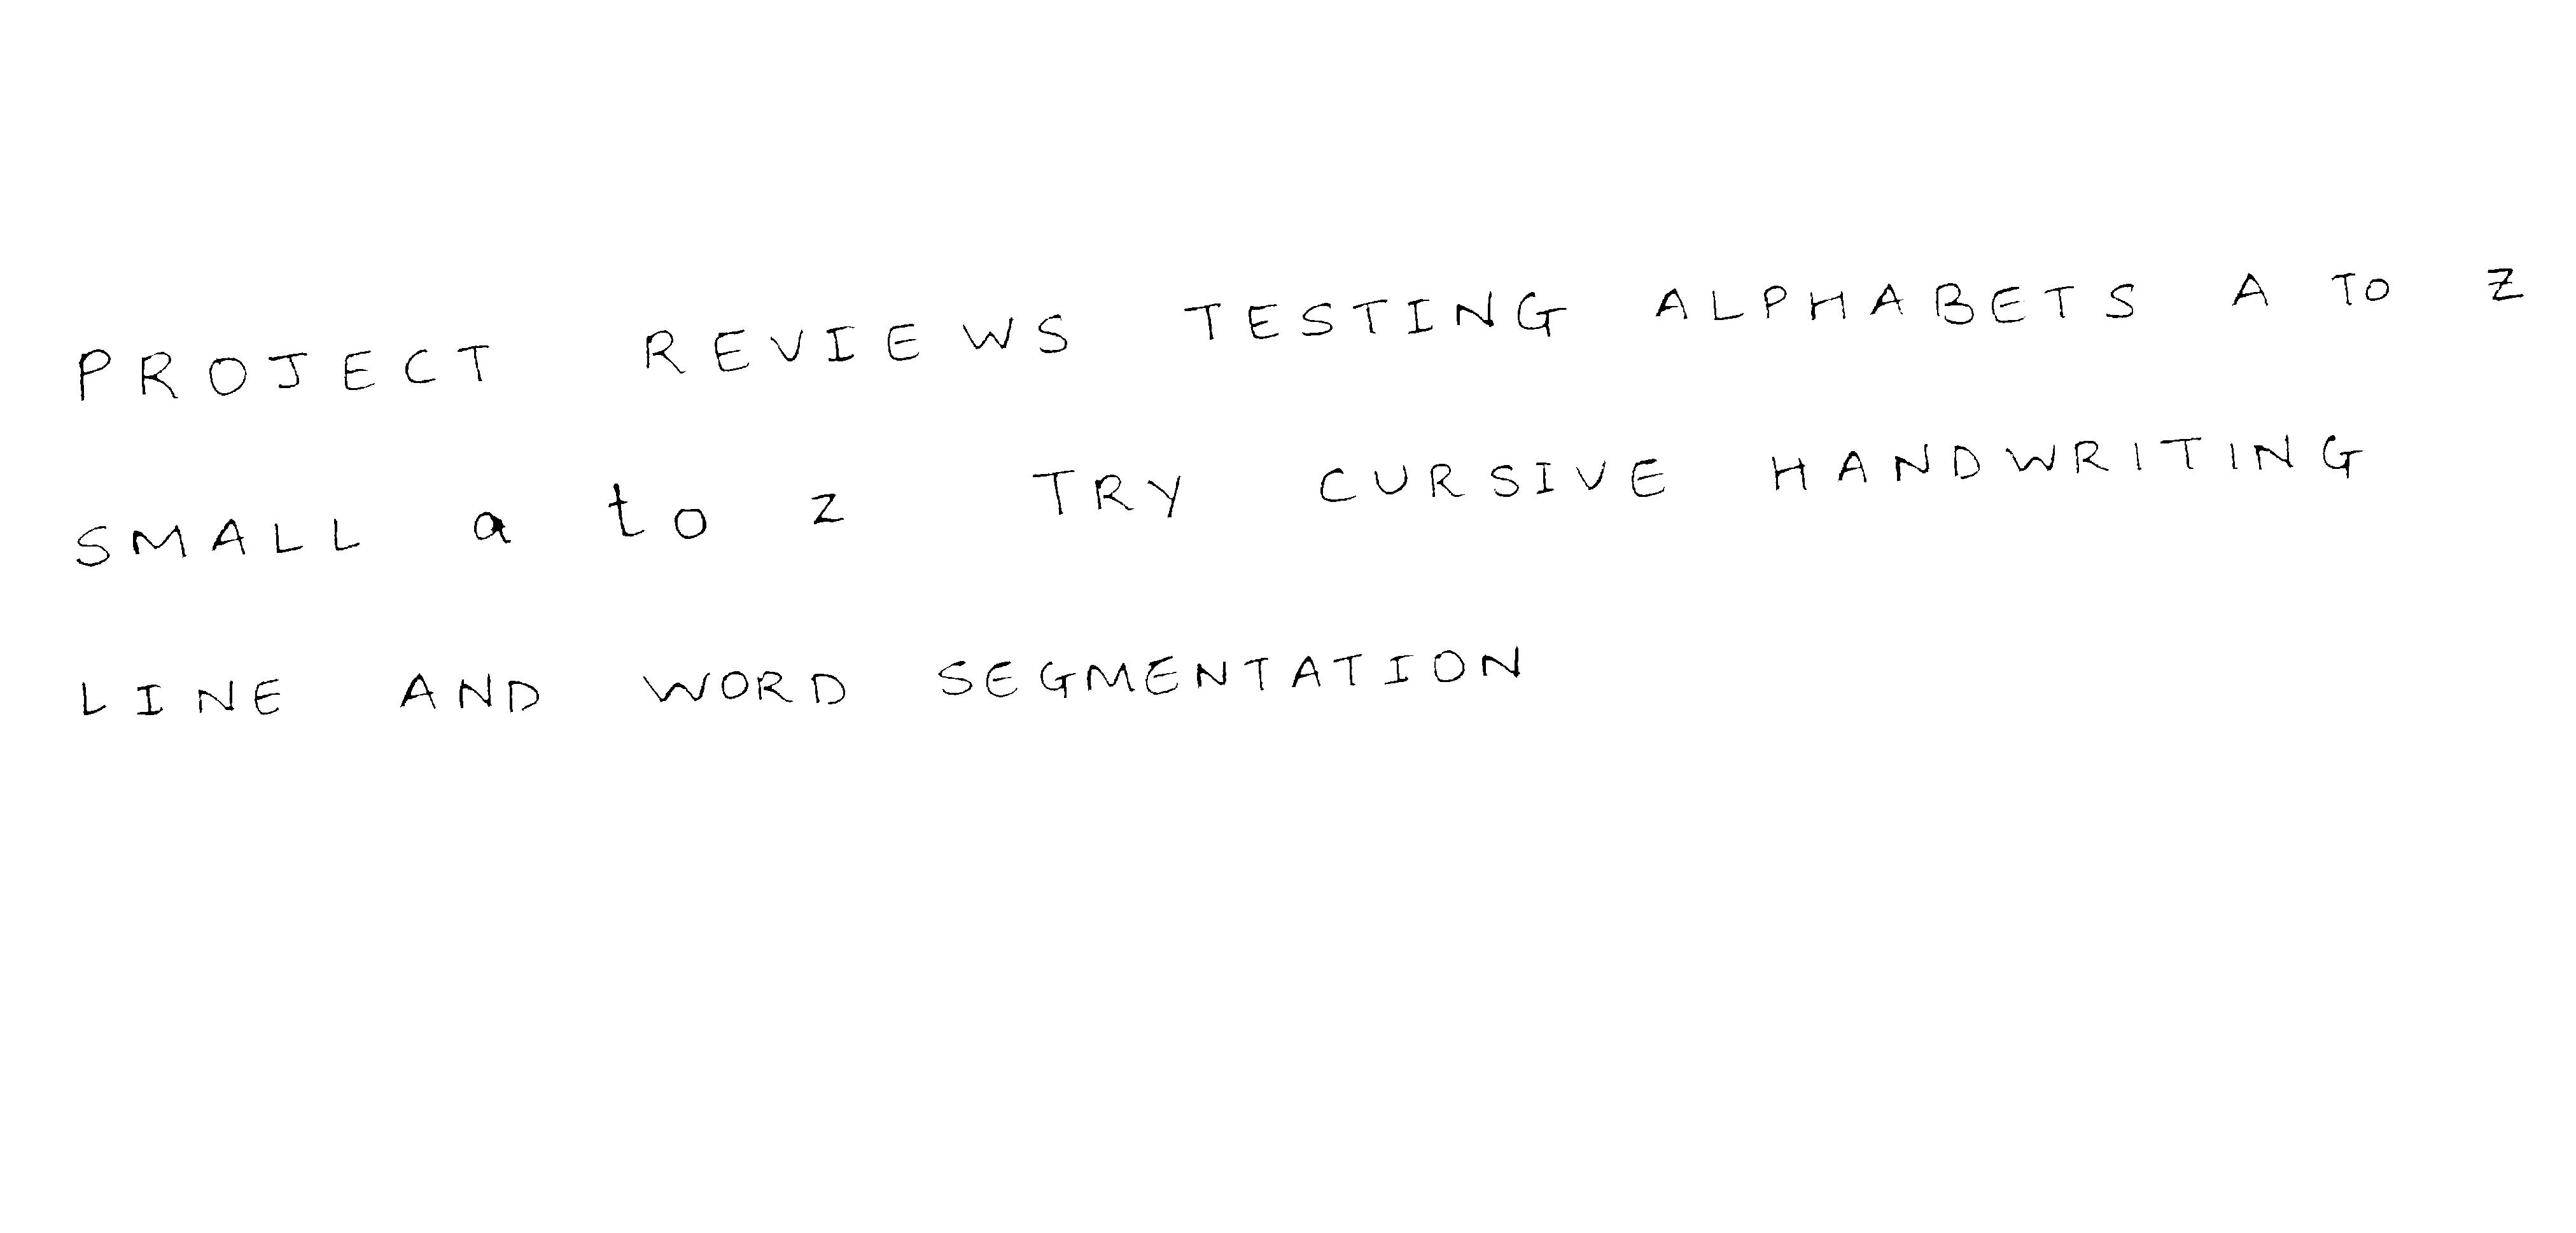 PROJECT REVIEWS TESTING ALPHABETS A TO Z
SMALL a to z TRY CURSIVE HANDWRITING
LINE AND WORD SEGMENTATION